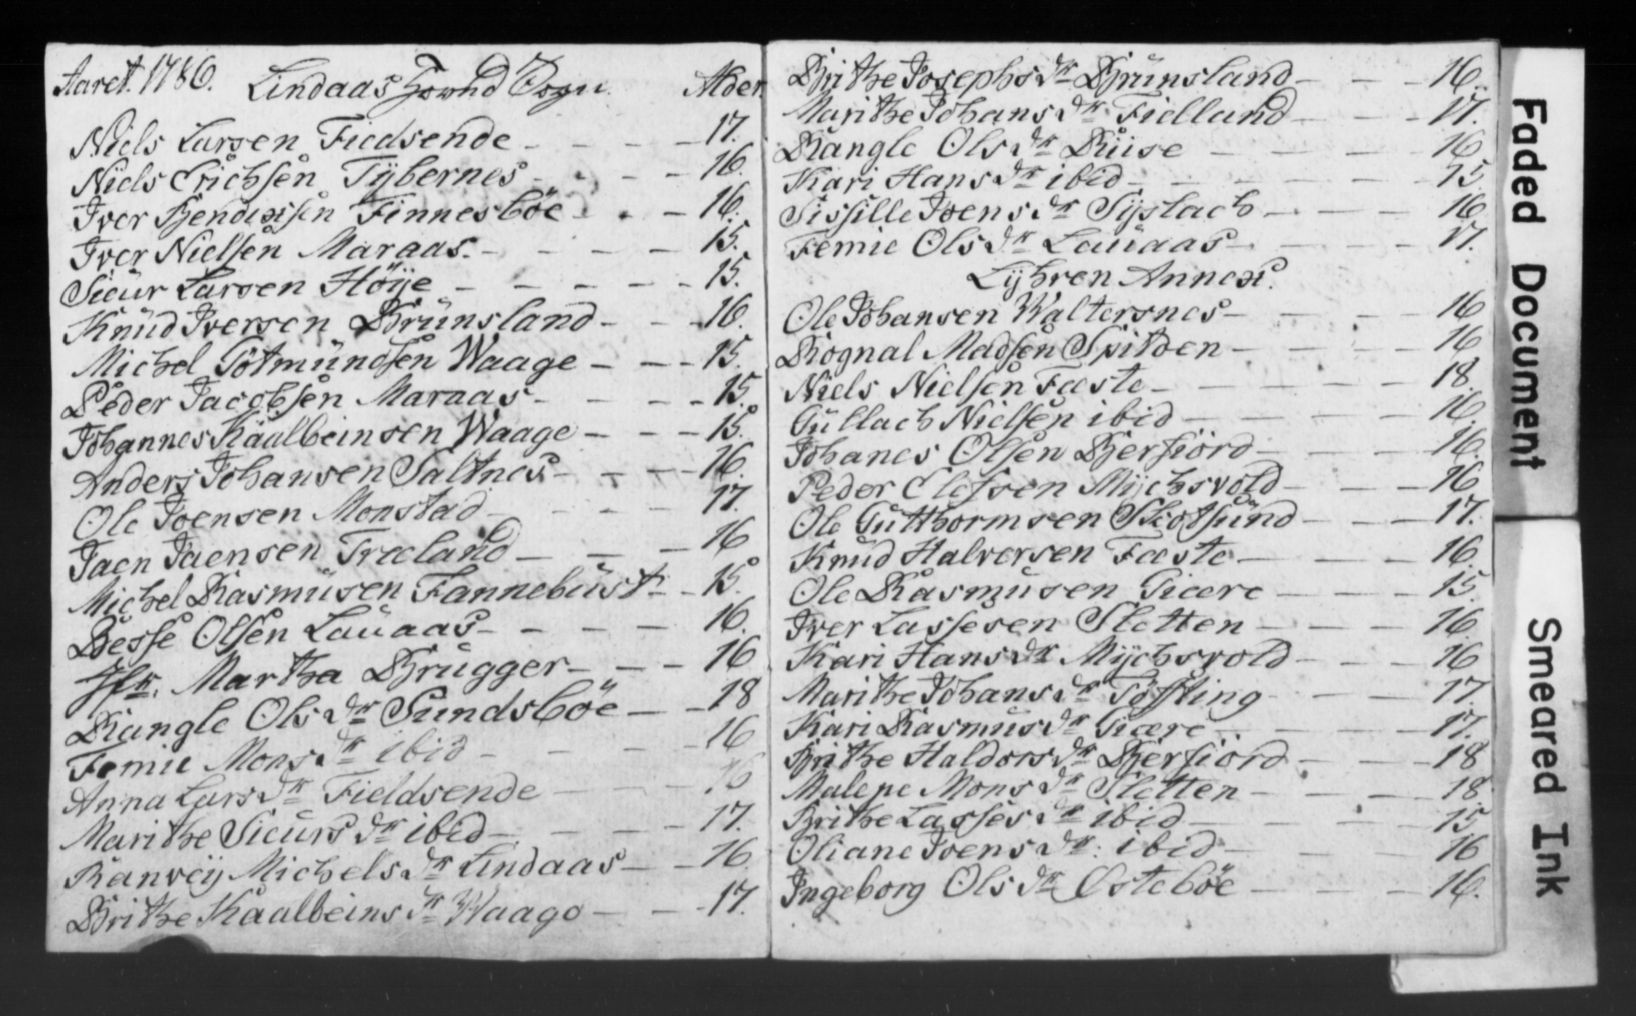 Aaret 1786. Lindaas Hovud Sogn. Alder.
Niels Larsen Fieldsende - - - 17.
Niels Erichsen Tÿbernes - - - 16.
Iver Hendrichsen Finnesböe - - 16.
Iver Nielsen Maraas - - - - 15.
Sieur Larsen Höÿe - - - - - 15.
Knüd Iversen Brünsland - - - 16.
Michel Götmündsen Waage - - - 15.
Peder Jacobsen Maraas - - - - 15.
Johannes Kaalbeinsen Waage - - - 15.
Anders Johansen Saltnes - - - 16.
Ole Joensen Monstad - - - - 17.
Jaen Jaensen Træland - - - 16
Michel Rasmüsen Fannebüst - - 15.
Besse Olsen Laüaas - - - - 16.
Jfr. Martha Brügger - - - 16
Rangle Ols dr Sundsböe - - 18
Femie Mons dr ibid - - - - 16
Anna Lars dr Fieldsende - - - 16
Marithe Sieurs dr ibid - - - - 17.
Ranveÿ Michels dr Lindaas - - 16
Brithe Kaalbeins dr Waage - - - 17.
Brithe Josephs dr Brünsland - - - 16.
Marithe Johans dr Fielland - - - 17.
Rangle Ols dr Riise - - - - 16
Kari Hans dr ibid - - - - - 15
Sissille Joens dr Sÿslach - - - 16
Femie Ols dr Laüaas - - - - 17.
Lÿhren Annex.
Ole Johansen Waltersnes - - - - 16
Rognal Madsen Spitøen - - - - 16
Niels Nielsen Fæste - - - - - 18.
Güllach Nielsen ibid - - - - 16.
Johanes Olsen Bierfiörd - - - - 16.
Peder Elefsen Mÿchsvold - - - 16
Ole Gutthormsen Skotsünd - - - 17.
Knud Halversen Fæste - - - - 16.
Ole Rasmusen Giære - - - - 15.
Iver Lassesen Sletten - - - - 16.
Kari Hans dr Mÿchsvold - - - 16
Marithe Johans dr Töffting - - - 17.
Kari Rasmus dr Giære - - - - 17.
Brithe Haldors dr Bierfiörd - - - 18
Malene Mons dr Sletten - - - - 18
Brithe Lasses dr ibid - - - - 15
Oliane Joens dr. ibid - - - - 16
Ingeborg Ols dr Østeböe - - - - 16.
Faded Document
Smeared Ink